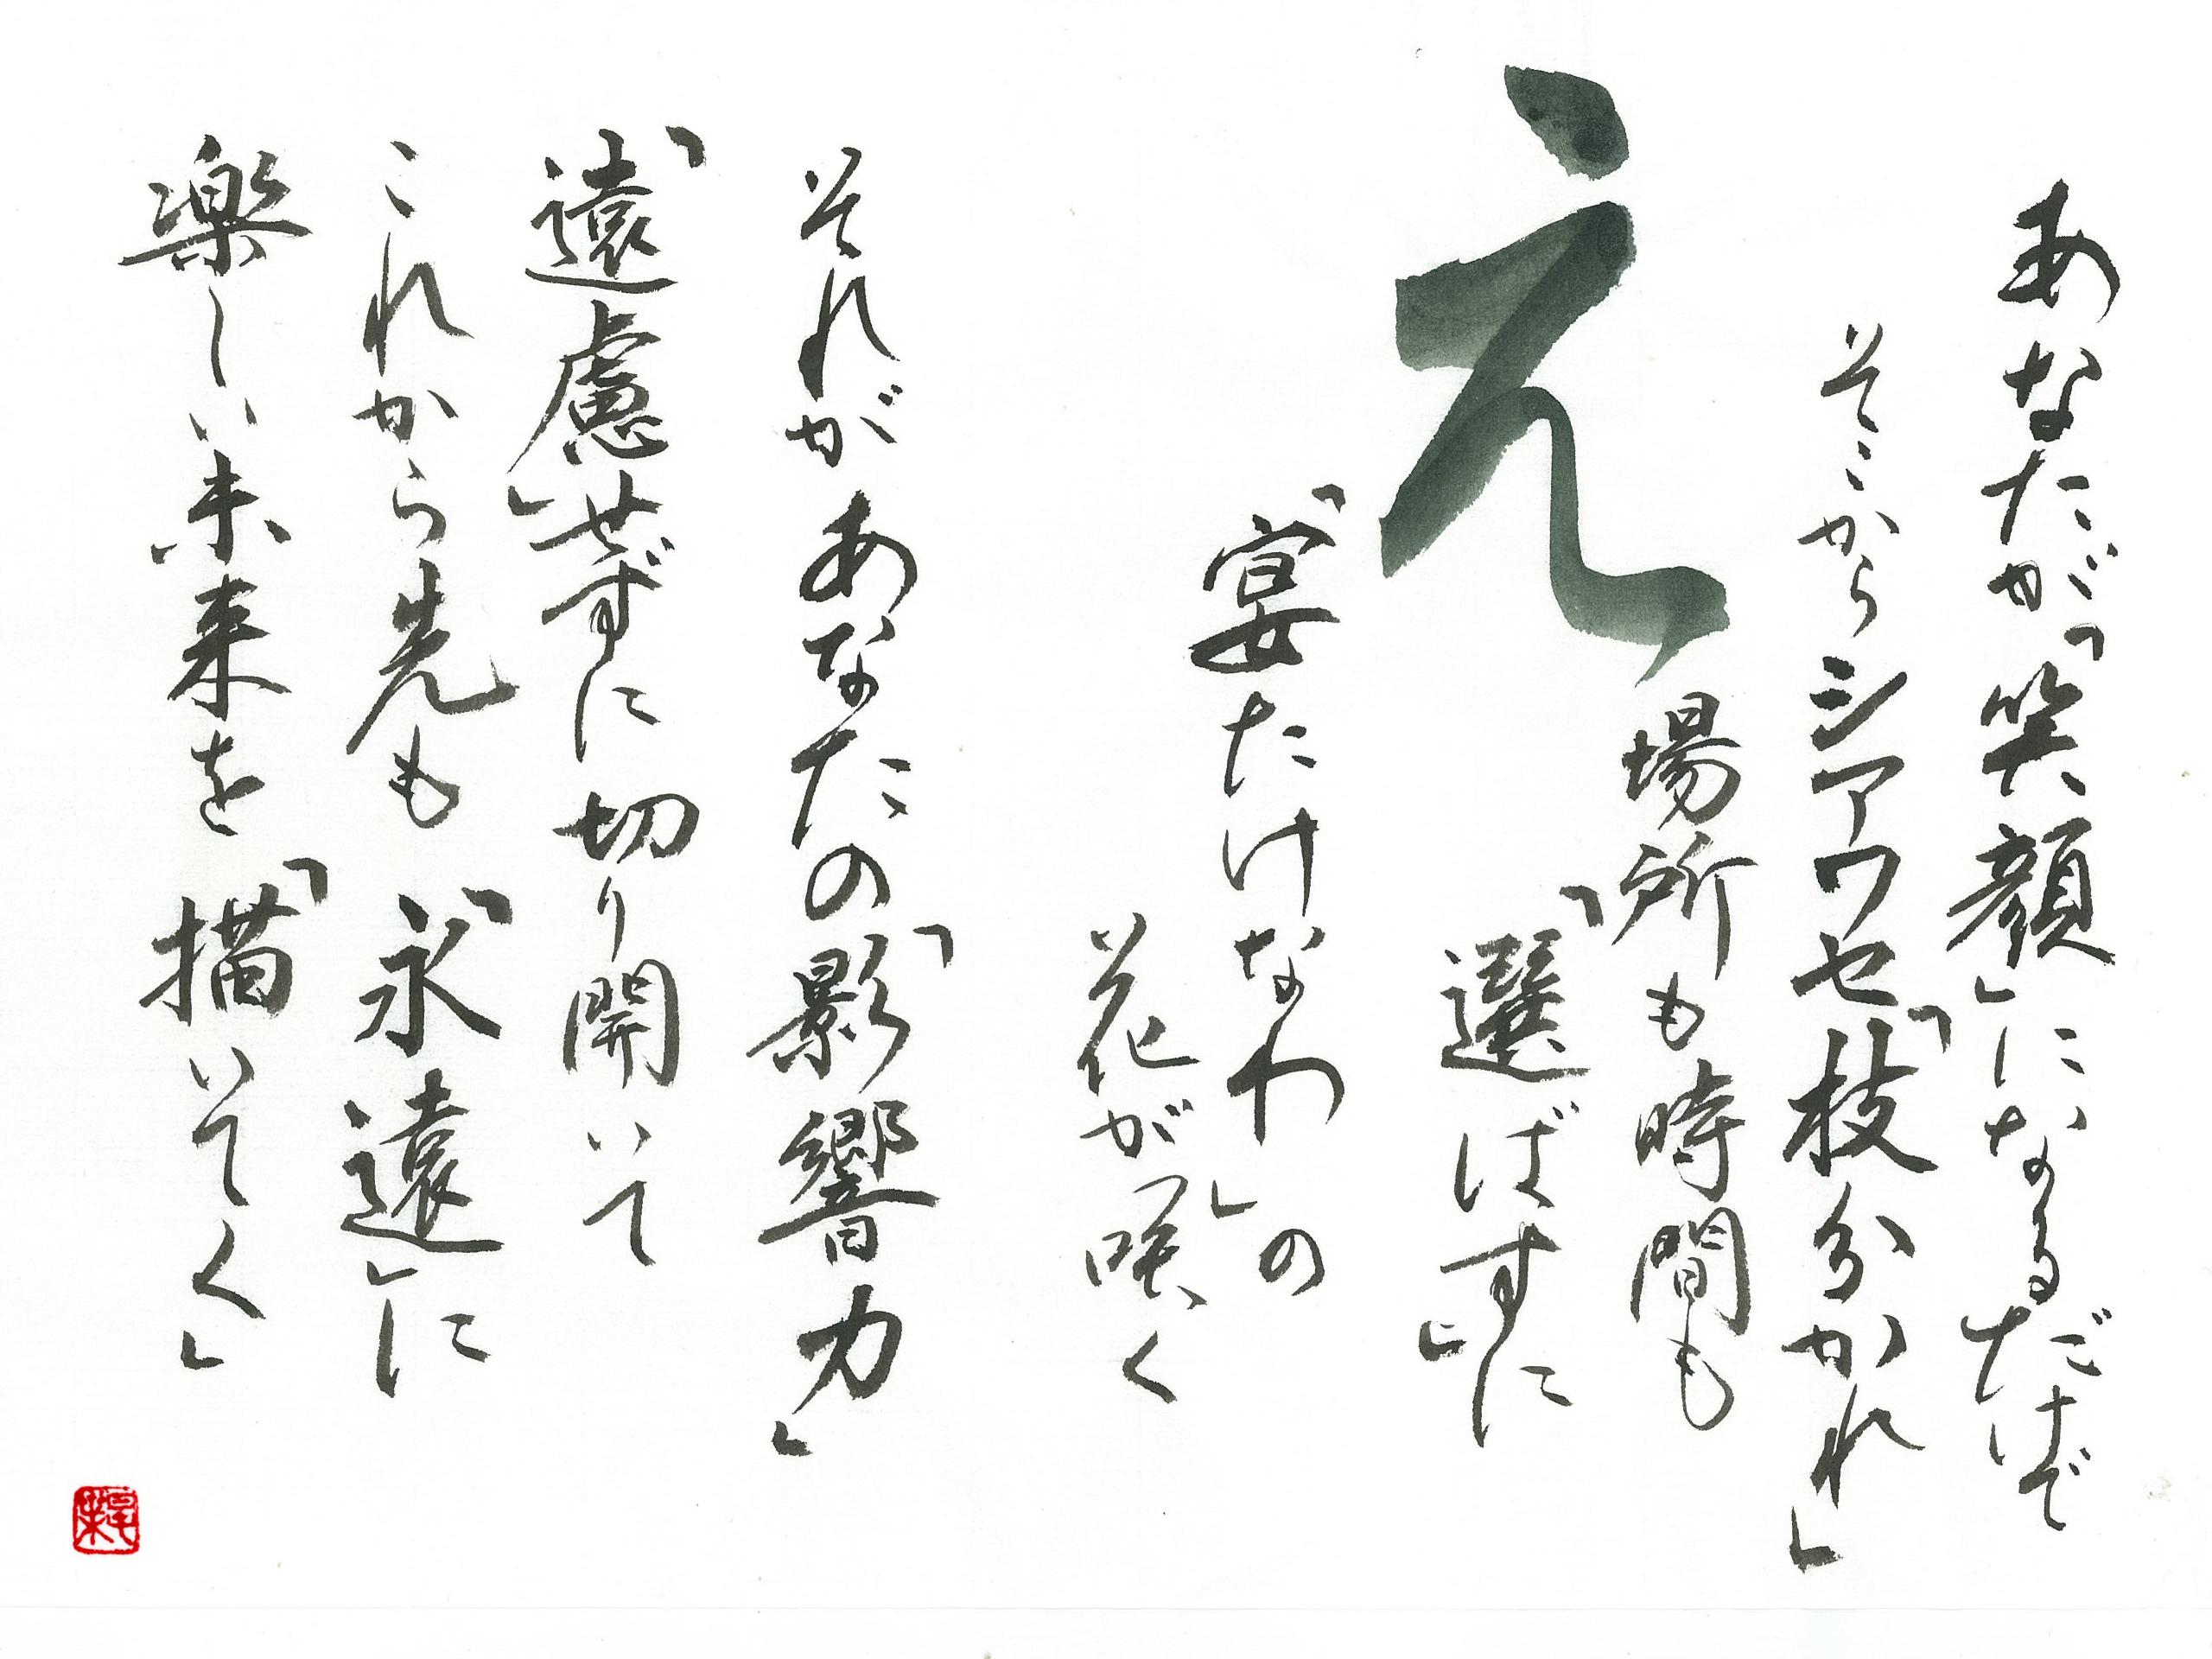 あなたが「笑顔」になるだけで
そこからシアワセ「枝分かれ」
え
場所も時間も
「選ばず」に
「宴たけなわ」の
花が咲く
それがあなたの「影響力」
「遠慮」せずに切り開いて
これから先も「永遠」に
楽しい未来を「描いてく」